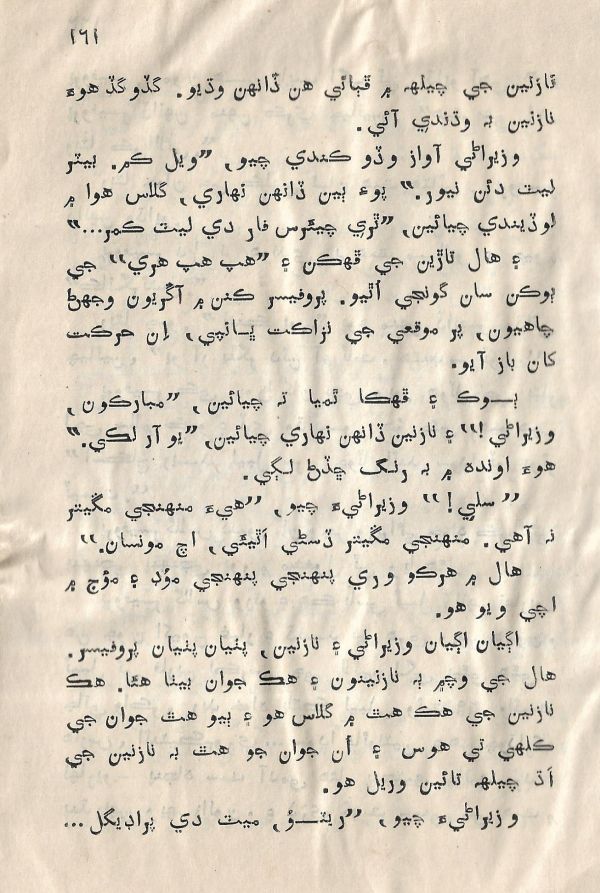 ۱۶۱
نازنين جي چيلهہ ۾ ڦٻائي هن ڏانهن وڌيو. گڏو گڏ هوءَ
نازنين بہ وڌندي آئي.
وزيراڻي آواز وڏو ڪندي چيو, ”ويل ڪم. بيٽر
ليٽ دئن نيور.“ پوءِ ٻين ڏانهن نهاري, گلاس هوا ۾
لوڏيندي چيائين, ”ٿري چيئرس فار دي ليٽ ڪمر...“
۽ هال تاڙين جي ڦهڪن ۽ ”هپ هپ هري“ جي
ٻوڪن سان گونجي اُٿيو. پروفيسر ڪنن ۾ آڱريون وجهڻ
چاهيون, پر موقعي جي نزاڪت ڀــانپي, اِن حرڪت
کان باز آيو.
ٻــوڪ ۽ ڦهڪا ٿميا تہ چيائين, ”مبارڪون,
وزيراڻي!“ ۽ نازنين ڏانهن نهاري چيائين, ”يو آر لڪي.“
هوءَ اونده ۾ بہ رنگ ڇڏڻ لڳي.
”سلي!“ وزيراڻيءَ چيو, ”هيءَ منهنجي مڱيتر
نہ آهي. منهنجي مڱيتر ڏسڻي اَٿيئي, اچ مونسان.“
هال ۾ هرڪو وري پنهنجي پنهنجي موُڊ ۽ موُج ۾
اچي ويو هو.
اڳيان اڳيان وزيراڻي ۽ نازنين, پٺيان پٺيان پروفيسر.
هال جي وچ ۾ ٻہ نازنينون ۽ هڪ جوان بيٺا هئا. هڪ
نازنين جي هڪ هٿ ۾ گلاس هو ۽ ٻيو هٿ جوان جي
ڪلهي تي هوس ۽ اُن جوان جو هٿ بہ نازنين جي
اَڌ چيلهہ تائين وريل هو.
وزيراڻيءَ چيو, ”ريٽــوُ, ميٽ دي پراڊيگل...